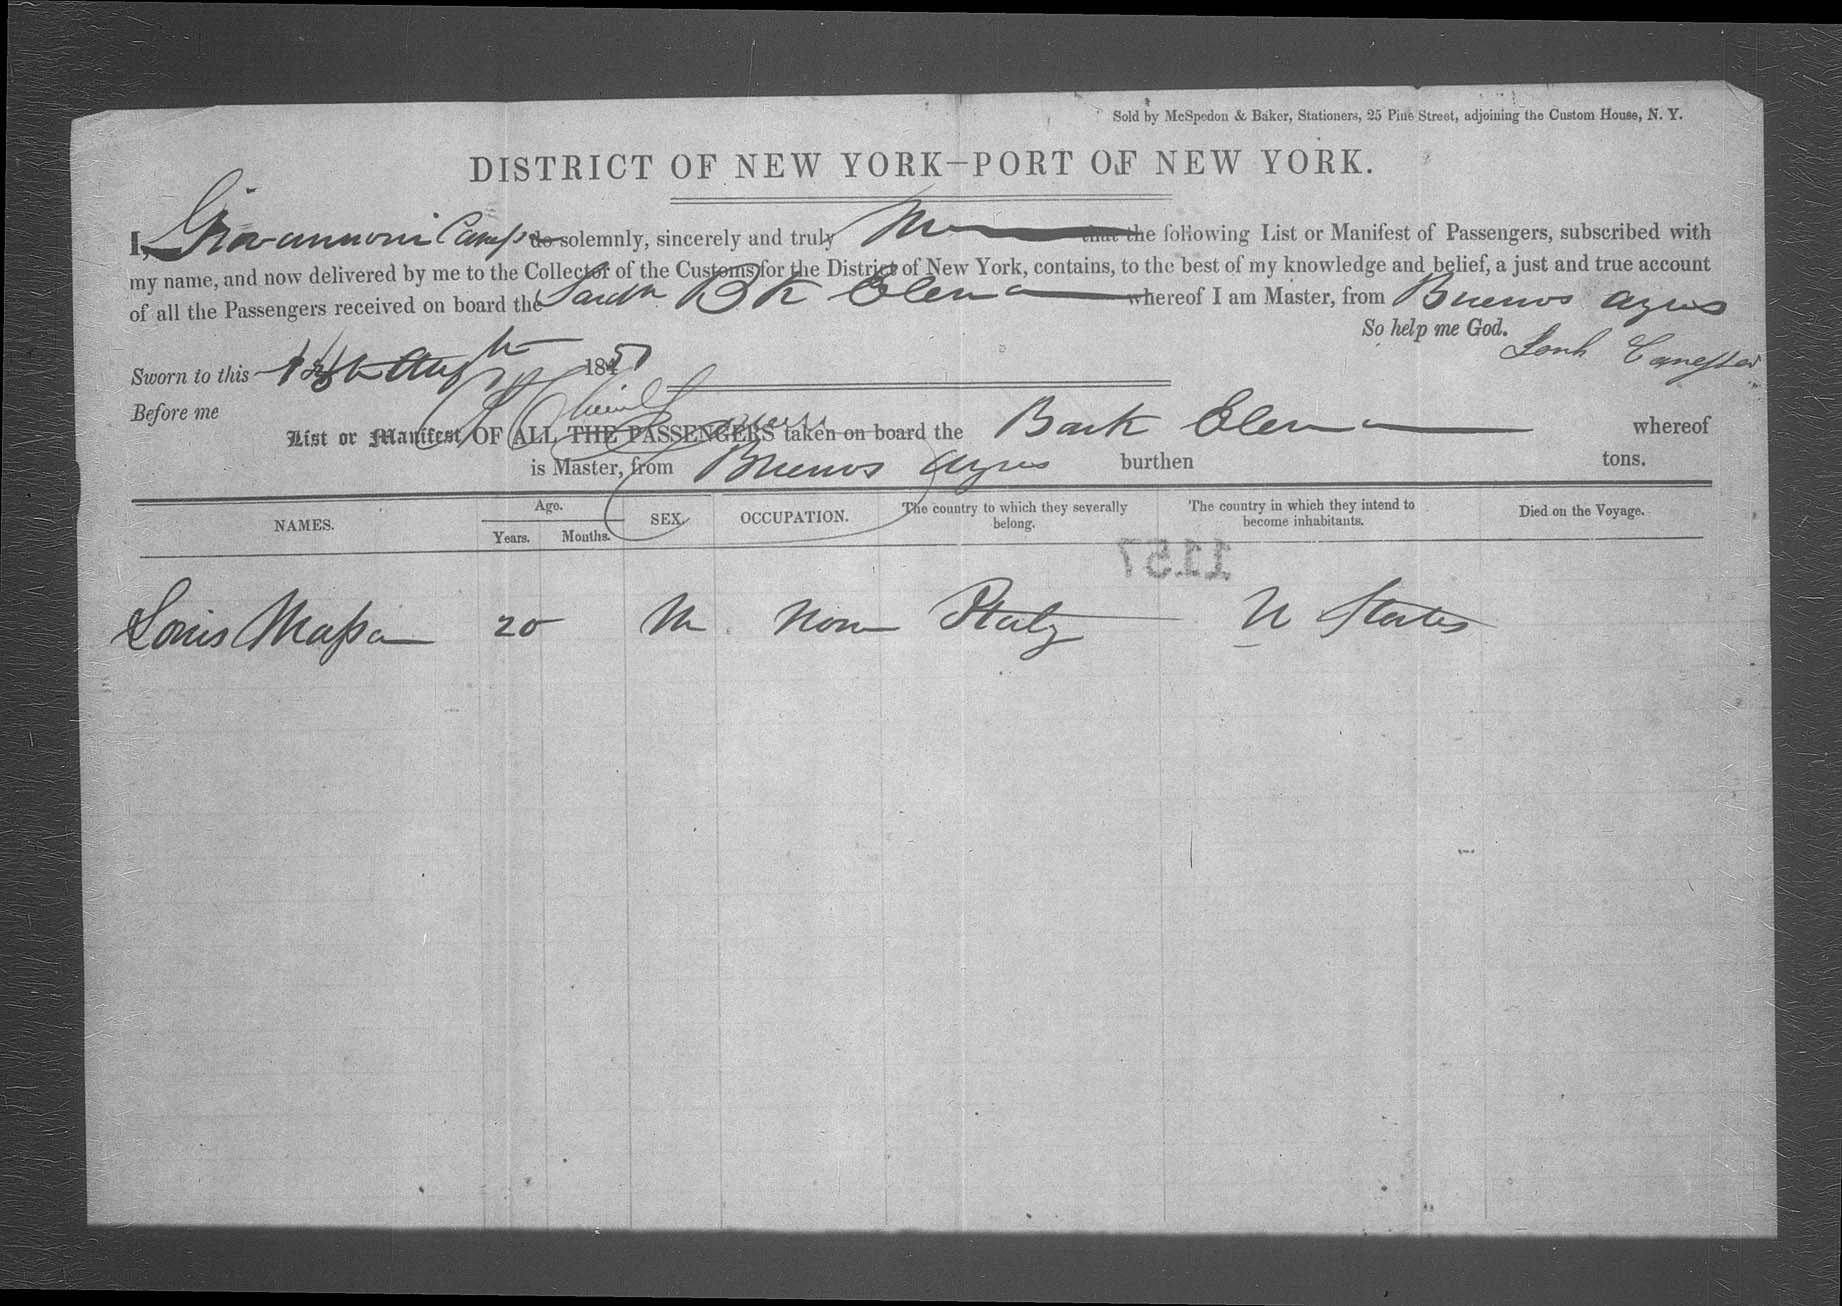 Sold by McSpedon & Baker, Stationers, 25 Pine Street, adjoining the Custom House, N. Y.
DISTRICT OF NEW YORK—PORT OF NEW YORK.
I, do solemnly, sincerely and truly that the following List or Manifest of Passengers, subscribed with
my name, and now delivered by me to the Collector of the Customs for the District of New York, contains, to the best of my knowledge and belief, a just and true account
of all the Passengers received on board the Bk Elena whereof I am Master, from Buenos Ayres
So help me God.
Sworn to this 184
Before me
List or Manifest OF ALL THE PASSENGERS taken on board the Bark Elena whereof
is Master, from Buenos Ayres burthen tons.
NAMES. Age. Years. Months. SEX. OCCUPATION. The country to which they severally belong. The country in which they intend to become inhabitants. Died on the Voyage.
1157
Louis Massa 20 M None Italy U States